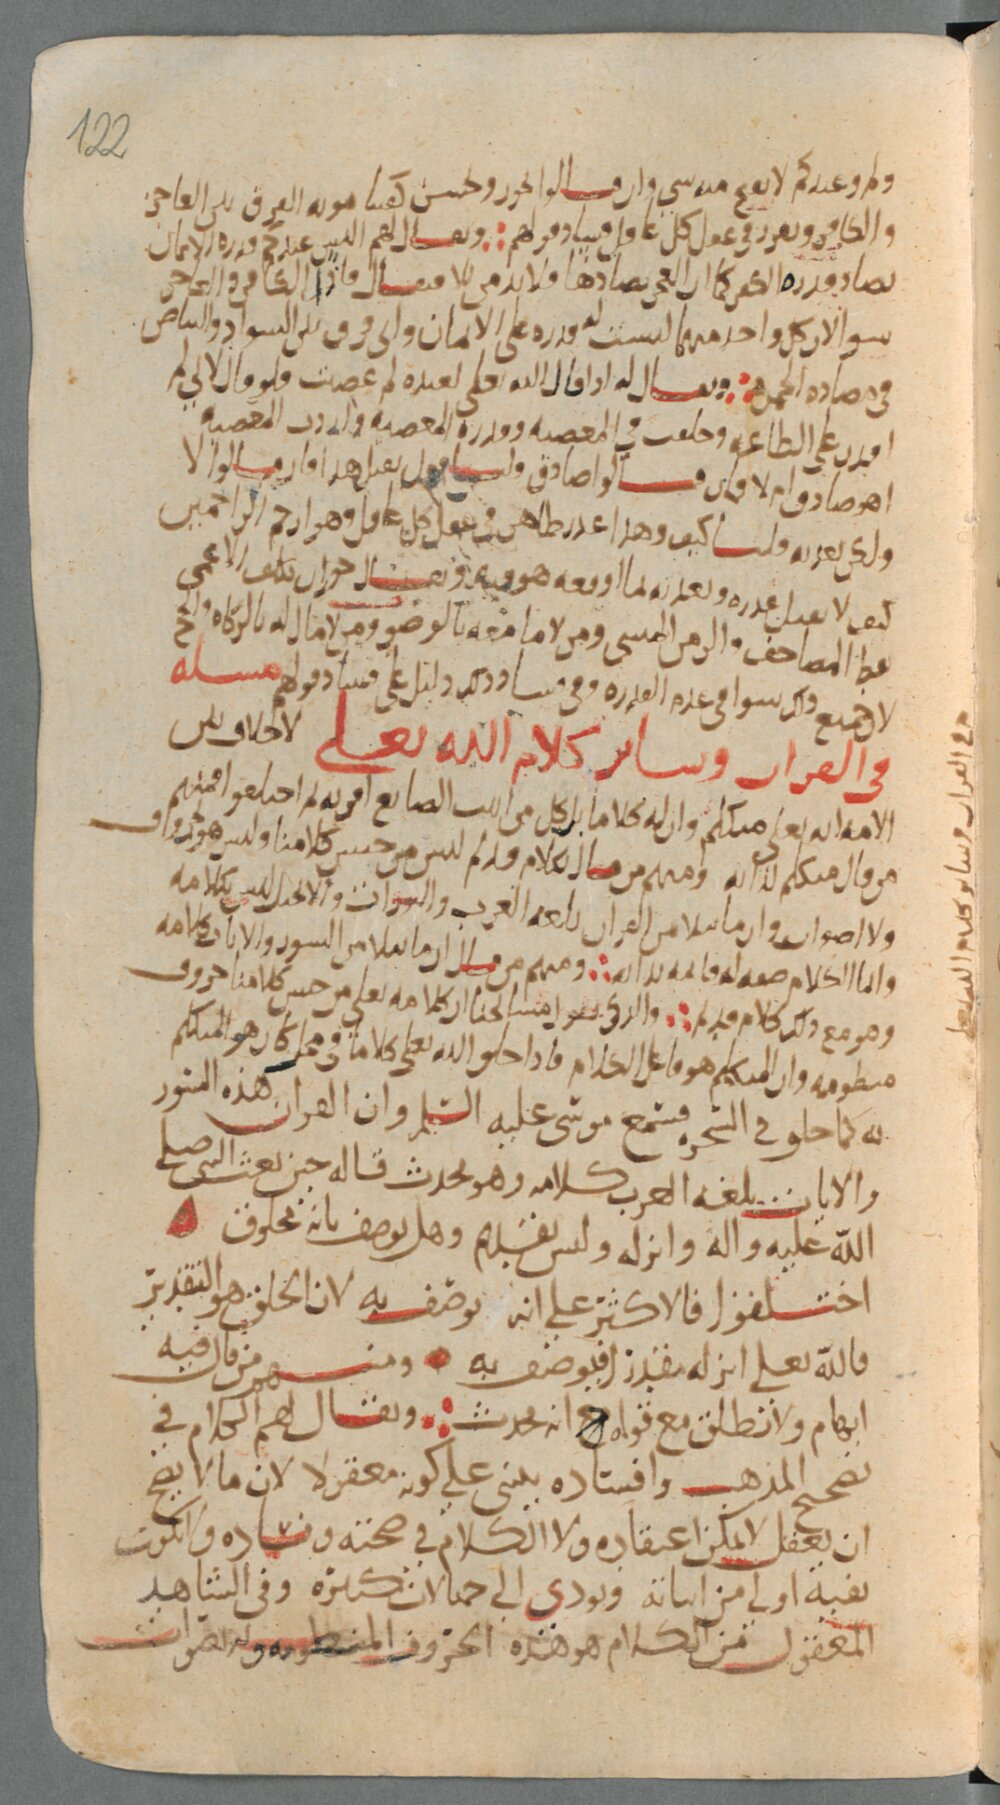 122
ولم وعندكم لا يقبح منه شي وان قالوا يجوز ويحسن كفينا مونه الفرق بين العاجز
والكافر ويقرر في عقول كل عاقل فساد قولهم ويقال لهم اليس عندكم قدره الايمان
تضاد قدره الكفر كما ان العجز يضادها فلا بد من بلا فيقال فاذا الكافر والعاجز
سوا لان كل واحد منهما ليست له قدره على الايمان واي فرق بين السواد والبياض
في مضاده الحمره ويقال له اذا قال الله تعلى لعبده لم عصيت فلو قال لاني لم
اقدر على الطاعه وخلقت في المعصيه وقدره المعصيه واردت المعصيه
اهو صادق ام لا فان قالوا صادق قلنا فهل يقبل هذا فان قالوا لا
ولكن يعذبه قلنا كيف وهذا عذر ظاهر في عقول كل عاقل وهو ارحم الراحمين
كيف لا يقبل عذره ويعذبه لما اوقعه هو فيه ويقال جوزوا تكليف الاعمى
نقط المصاحف والزمن المشي ومن لا ما معه بالوضو ومن لا مال له بالزكاه والحج
لان جميع ذلك سوا في عدم القدره وفي فساد ذلك دليل على فساد قولهم مسله
في القران وساير كلام الله تعلى لا خلاف بين
الامه انه تعلى متكلم وان له كلاما بل كل من اثبت الصانع اقر به ثم اختلفوا فمنهم
من قال متكلم لذاته ومنهم من قال بكلام قديم ليس من جنس كلامنا وليس هو بحروف
ولا اصوات وان ما يتلا من القران بلغه العرب والتورات والانجيل ليس بكلامه
وانما الكلام صفه له قايمه بذاته ومنهم من قال ان ما يتلا من السور والايات كلامه
وهو مع ذلك كلام قديم والذي يقول مشايخنا ان كلامه تعلى من جنس كلامنا حروف
منظومه وان المتكلم هو فاعل الكلام فاذا خلق الله تعلى كلاما في محل كان هو المتكلم
به كما خلق في الشجره فسمع موسى عليه السلم وان القران هذه السور
والايات بلغه العرب كلامه وهو محدث قاله حين بعث النبي صلى
الله عليه واله وانزله وليس بقديم وهل يوصف بانه مخلوق
اختلفوا فالاكثر على انه يوصف به لان الخلق هو التقدير
فالله تعلى انزله مقدرا فيوصف به ومنهم من قال فيه
ايهام ولا نطلق مع قوله انه محدث ويقال لهم الكلام في
تصحيح المذهب وافساده يبنى على كونه معقولا لان ما لا يصح
ان يعقل لا يمكن اعتقاده ولا الكلام في صحته وفساده ولا يكون
نفيه اولى من اثباته ويودي الى جهالات كثيره وفي الشاهد
المعقول من الكلام هو هذه الحروف المنظومه والاصوات
في القران وساير كلام الله تعلى